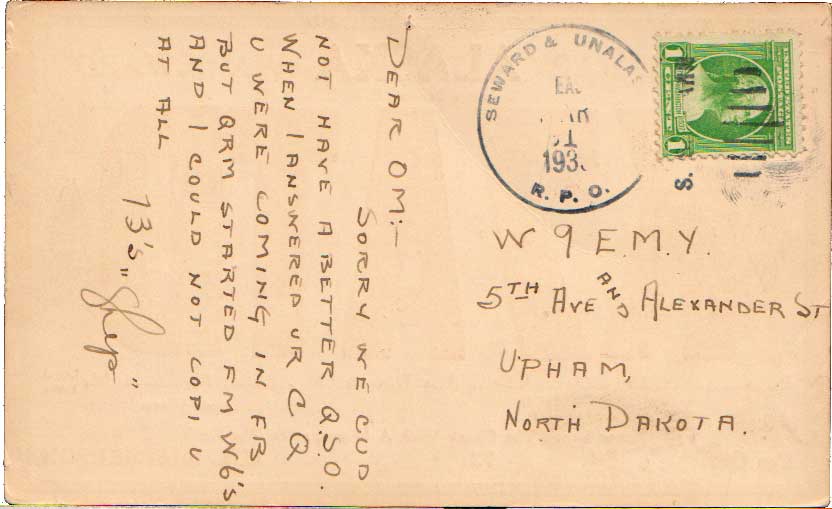 DEAR OM:-
SORRY WE CUD
NOT HAVE A BETTER QSO.
WHEN I ANSWERED UR CQ
U WERE COMING IN FB
BUT QRM STARTED FM W6's
AND I COULD NOT COPI U
AT ALL
73's
"Shep"
SEWARD & UNALAS
193
R. P. O.
S.
1
1
W9EMY.
5TH AVE AND ALEXANDER ST
UPHAM,
NORTH DAKOTA.